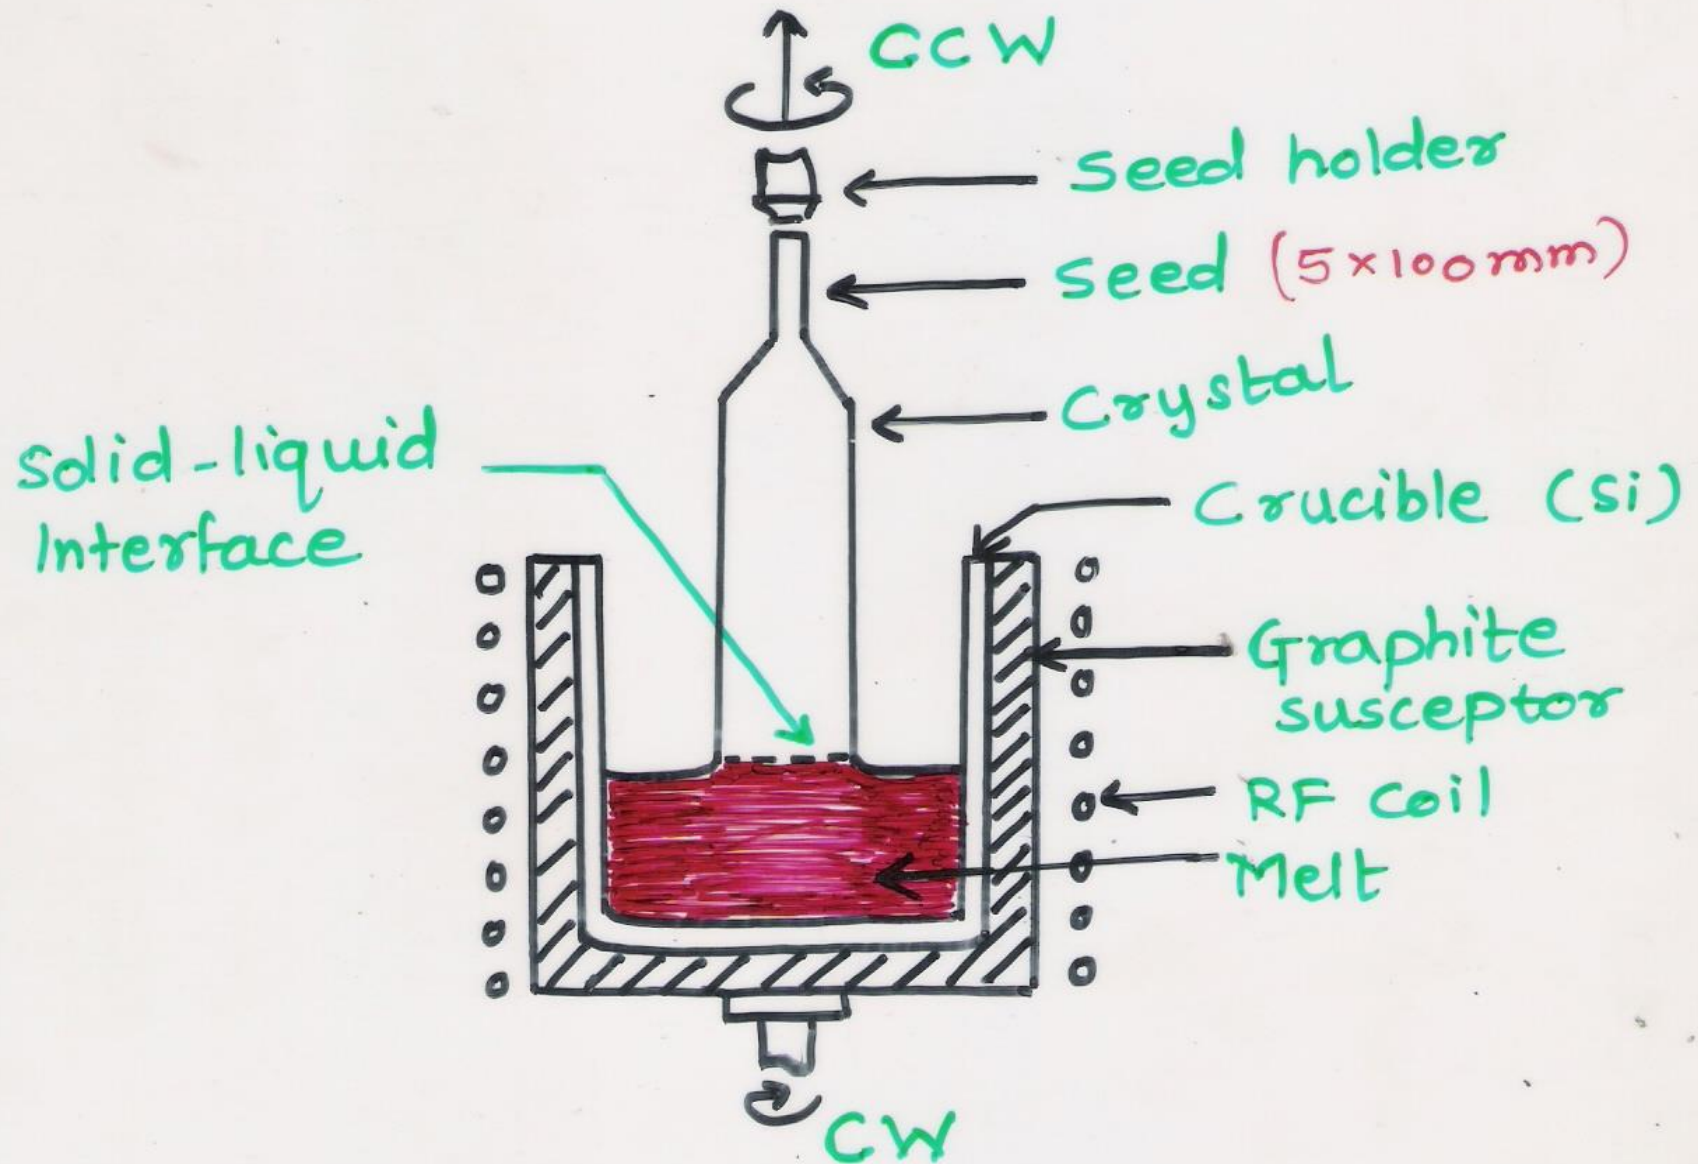 CCW
Seed holder
Seed (5×100mm)
Crystal
Solid-liquid
Interface
Crucible (Si)
Graphite
susceptor
RF coil
Melt
CW